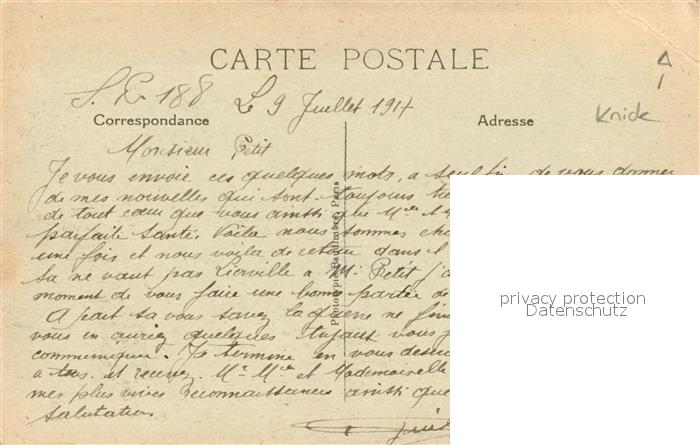 CARTE POSTALE
S. P. 188 Le 9 Juillet 1917
Correspondance
Adresse
Knide
Monsieur Petit
Je vous envoie ces quelques mots, a seul fin de vous donner
de mes nouvelles qui sont toujours
de tout cœur que vous ainsti que Mme et
parfaite santé. Voila nous sommes
une fois et nous voyla de retour dans
sa ne vaut pas Lierville a Mr Petit
moment de vous faire une bonne partée de
A part sa vous savez la guerre ne
vous en auriez quelques vous
communiquer. Je termine en vous
a tous. et recevez. Mr Mme et Mademoiselle
mes plus vives Reconnaissances ainsti que
Salutation
privacy protection
Datenschutz